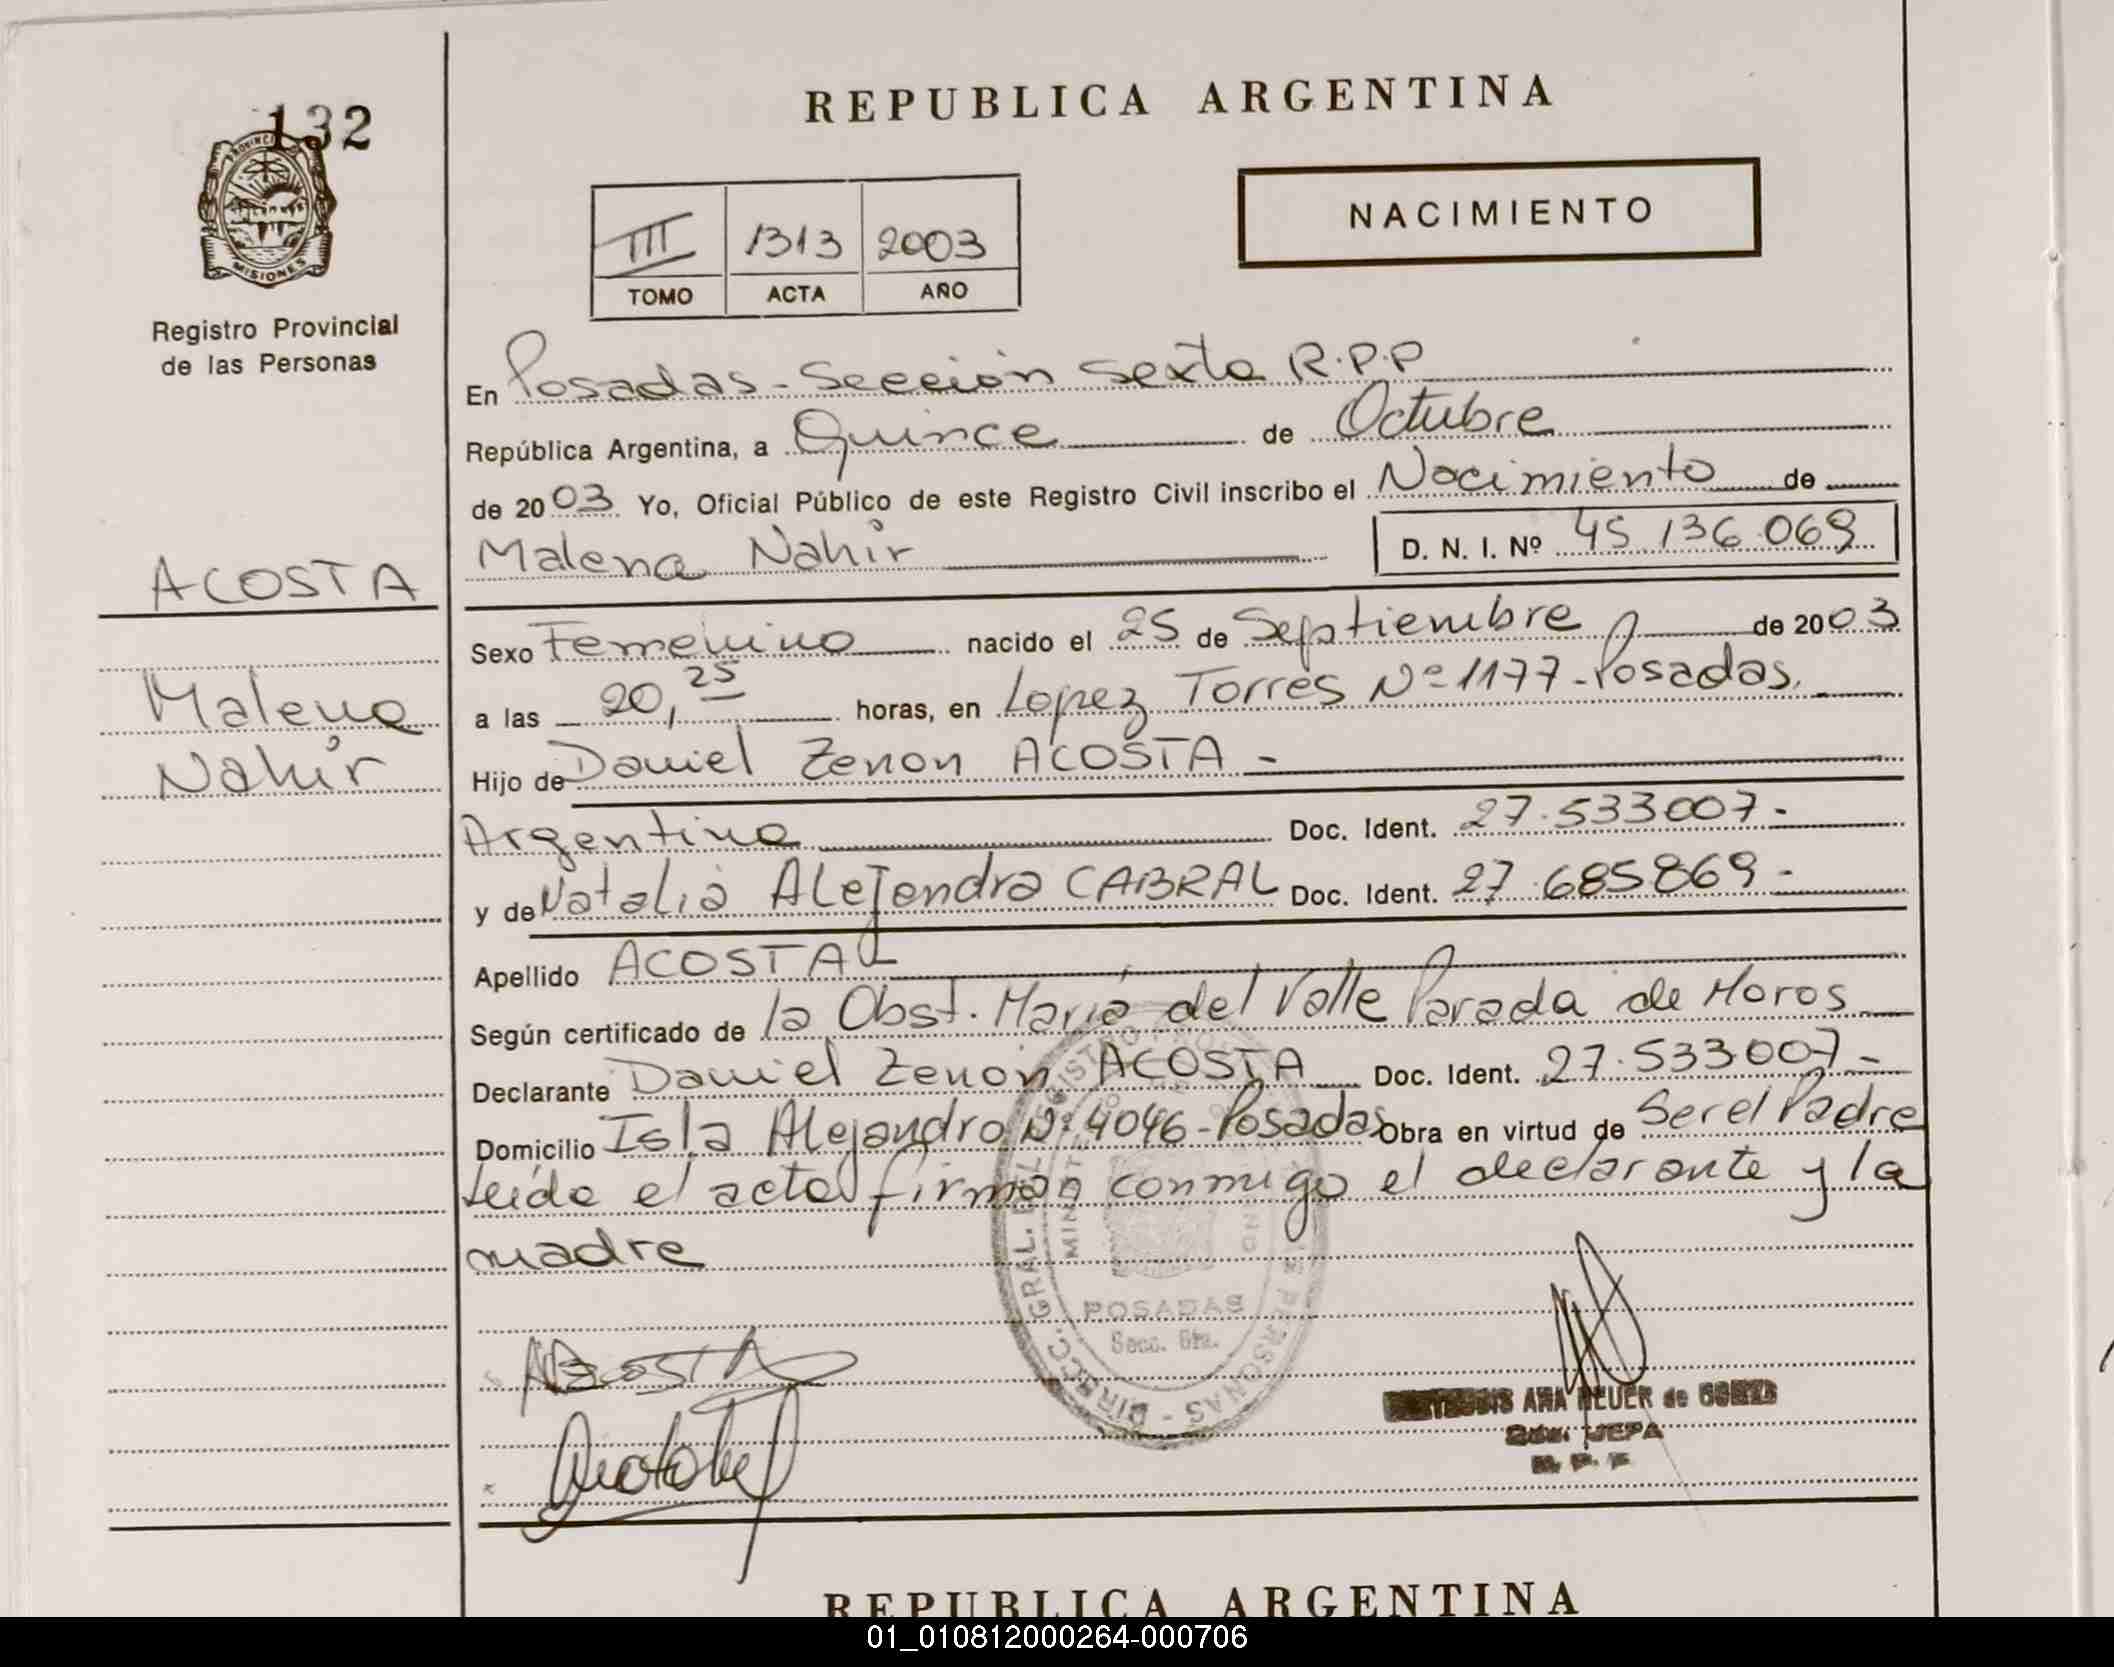 132
PROVINCIA
MISIONES
Registro Provincial
de las Personas
REPUBLICA ARGENTINA
NACIMIENTO
III 1313 2003
TOMO ACTA AÑO
En Posadas - Sección Sexta R.P.P
República Argentina, a Quince de Octubre
de 2003 Yo, Oficial Público de este Registro Civil inscribo el Nacimiento de
Malena Nahir D. N. I. Nº 45.136.069
ACOSTA
Malena
Nahir
Sexo Femenino nacido el 25 de Septiembre de 2003
a las 20,25 horas, en Lopez Torres Nº 1177 - Posadas.
Hijo de Daniel Zenon ACOSTA -
Argentino Doc. Ident. 27.533007-
y de Natalia Alejandra CABRAL Doc. Ident. 27.685869-
Apellido ACOSTA
Según certificado de la Obst. María del Valle Parada de Moros
Declarante Daniel Zenón ACOSTA Doc. Ident. 27.533.007-
Domicilio Isla Alejandro Nº 4046 - Posadas Obra en virtud de Ser el Padre
Leída el acta firman conmigo el declarante y la
madre
POSADAS
Secc. 6ta.
ACOSTA
ANA NEUER de
REPUBLICA ARGENTINA
01_010812000264-000706